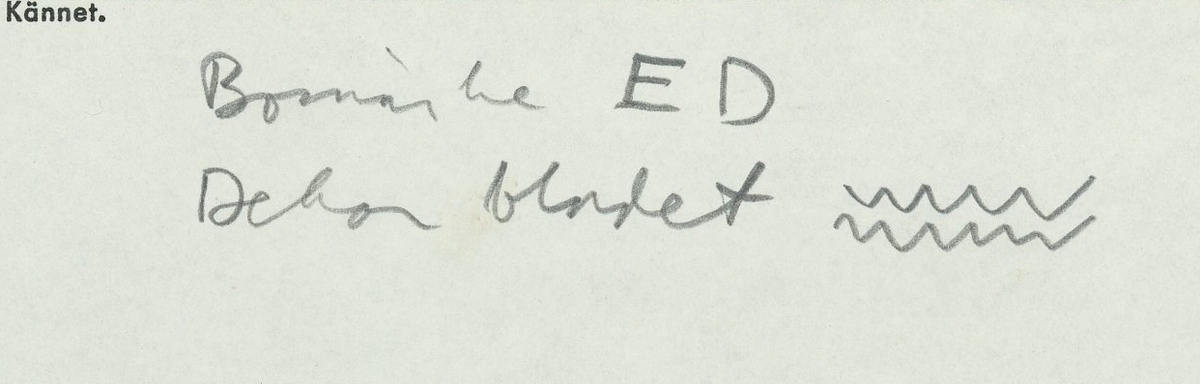 Kännet.
Bomärke ED
Dekor bladet